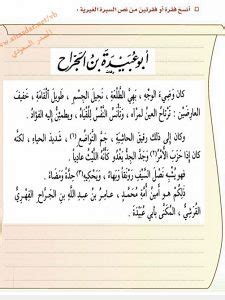 أنسخ فقرة أو فقرتين من نص السيرة الغيرية :
أبو عُبَيْدَةَ بْنُ الجَرَّاحِ
كان وَضِيءَ الوَجْهِ ، بَهِيَّ الطَّلْعَةِ ، نَحِيلَ الجِسْمِ ، طَوِيلَ القَامَةِ ، خَفِيفَ
العَارِضَيْنِ ، تَرْتَاحُ العينُ لِمَرآهُ ، وَتَأْنَسُ النَّفْسُ لِلُقْيَاهُ ، ويطمئنُّ إليه الفؤاد .
وكان إلى ذلك رقيقَ الحاشِيَةِ ، جَمَّ التَّوَاضُعِ ، شديدَ الحياءِ ، لكنه
كان إذا حَزَبَ الأمْرُ وَجَدَّ الجِدُّ يَغْدُو كَأَنَّهُ اللَّيْثُ عَادِياً .
فهو يُشْبِهُ نَصْلَ السَّيْفِ رَوْنَقاً وَبَهَاءً ، وَيَحْكِيهِ حِدَّةً وَمَضَاءً .
ذَلِكُمْ هو أمينُ أُمَّةِ مُحَمَّدٍ ، عامِرُ بن عبدِ اللهِ بنِ الجراحِ الفِهْرِيُّ
القُرَشِيُّ ، المُكَنَّى بأبي عُبَيْدَةَ .